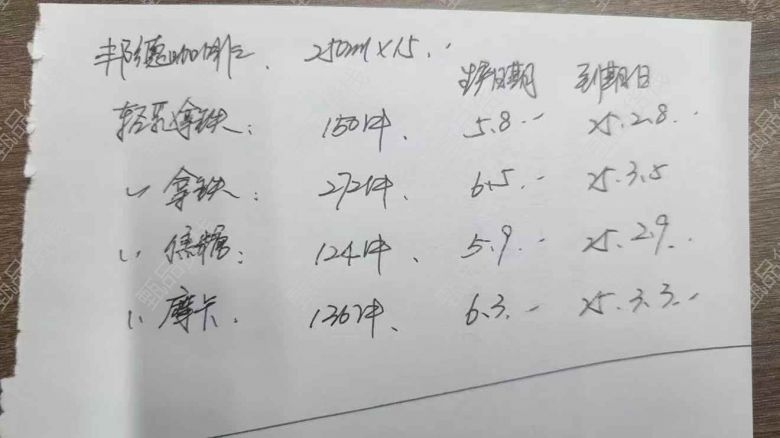 邦德咖啡. 250ml×15..
生产日期 到期日
轻乳拿铁: 150件、 5.8.. 25.2.8..
〃 拿铁: 272件、 6.5.. 25.3.5
〃 焦糖: 124件、 5.9.. 25.2.9..
〃 摩卡. 136件、 6.3.. 25.3.3..